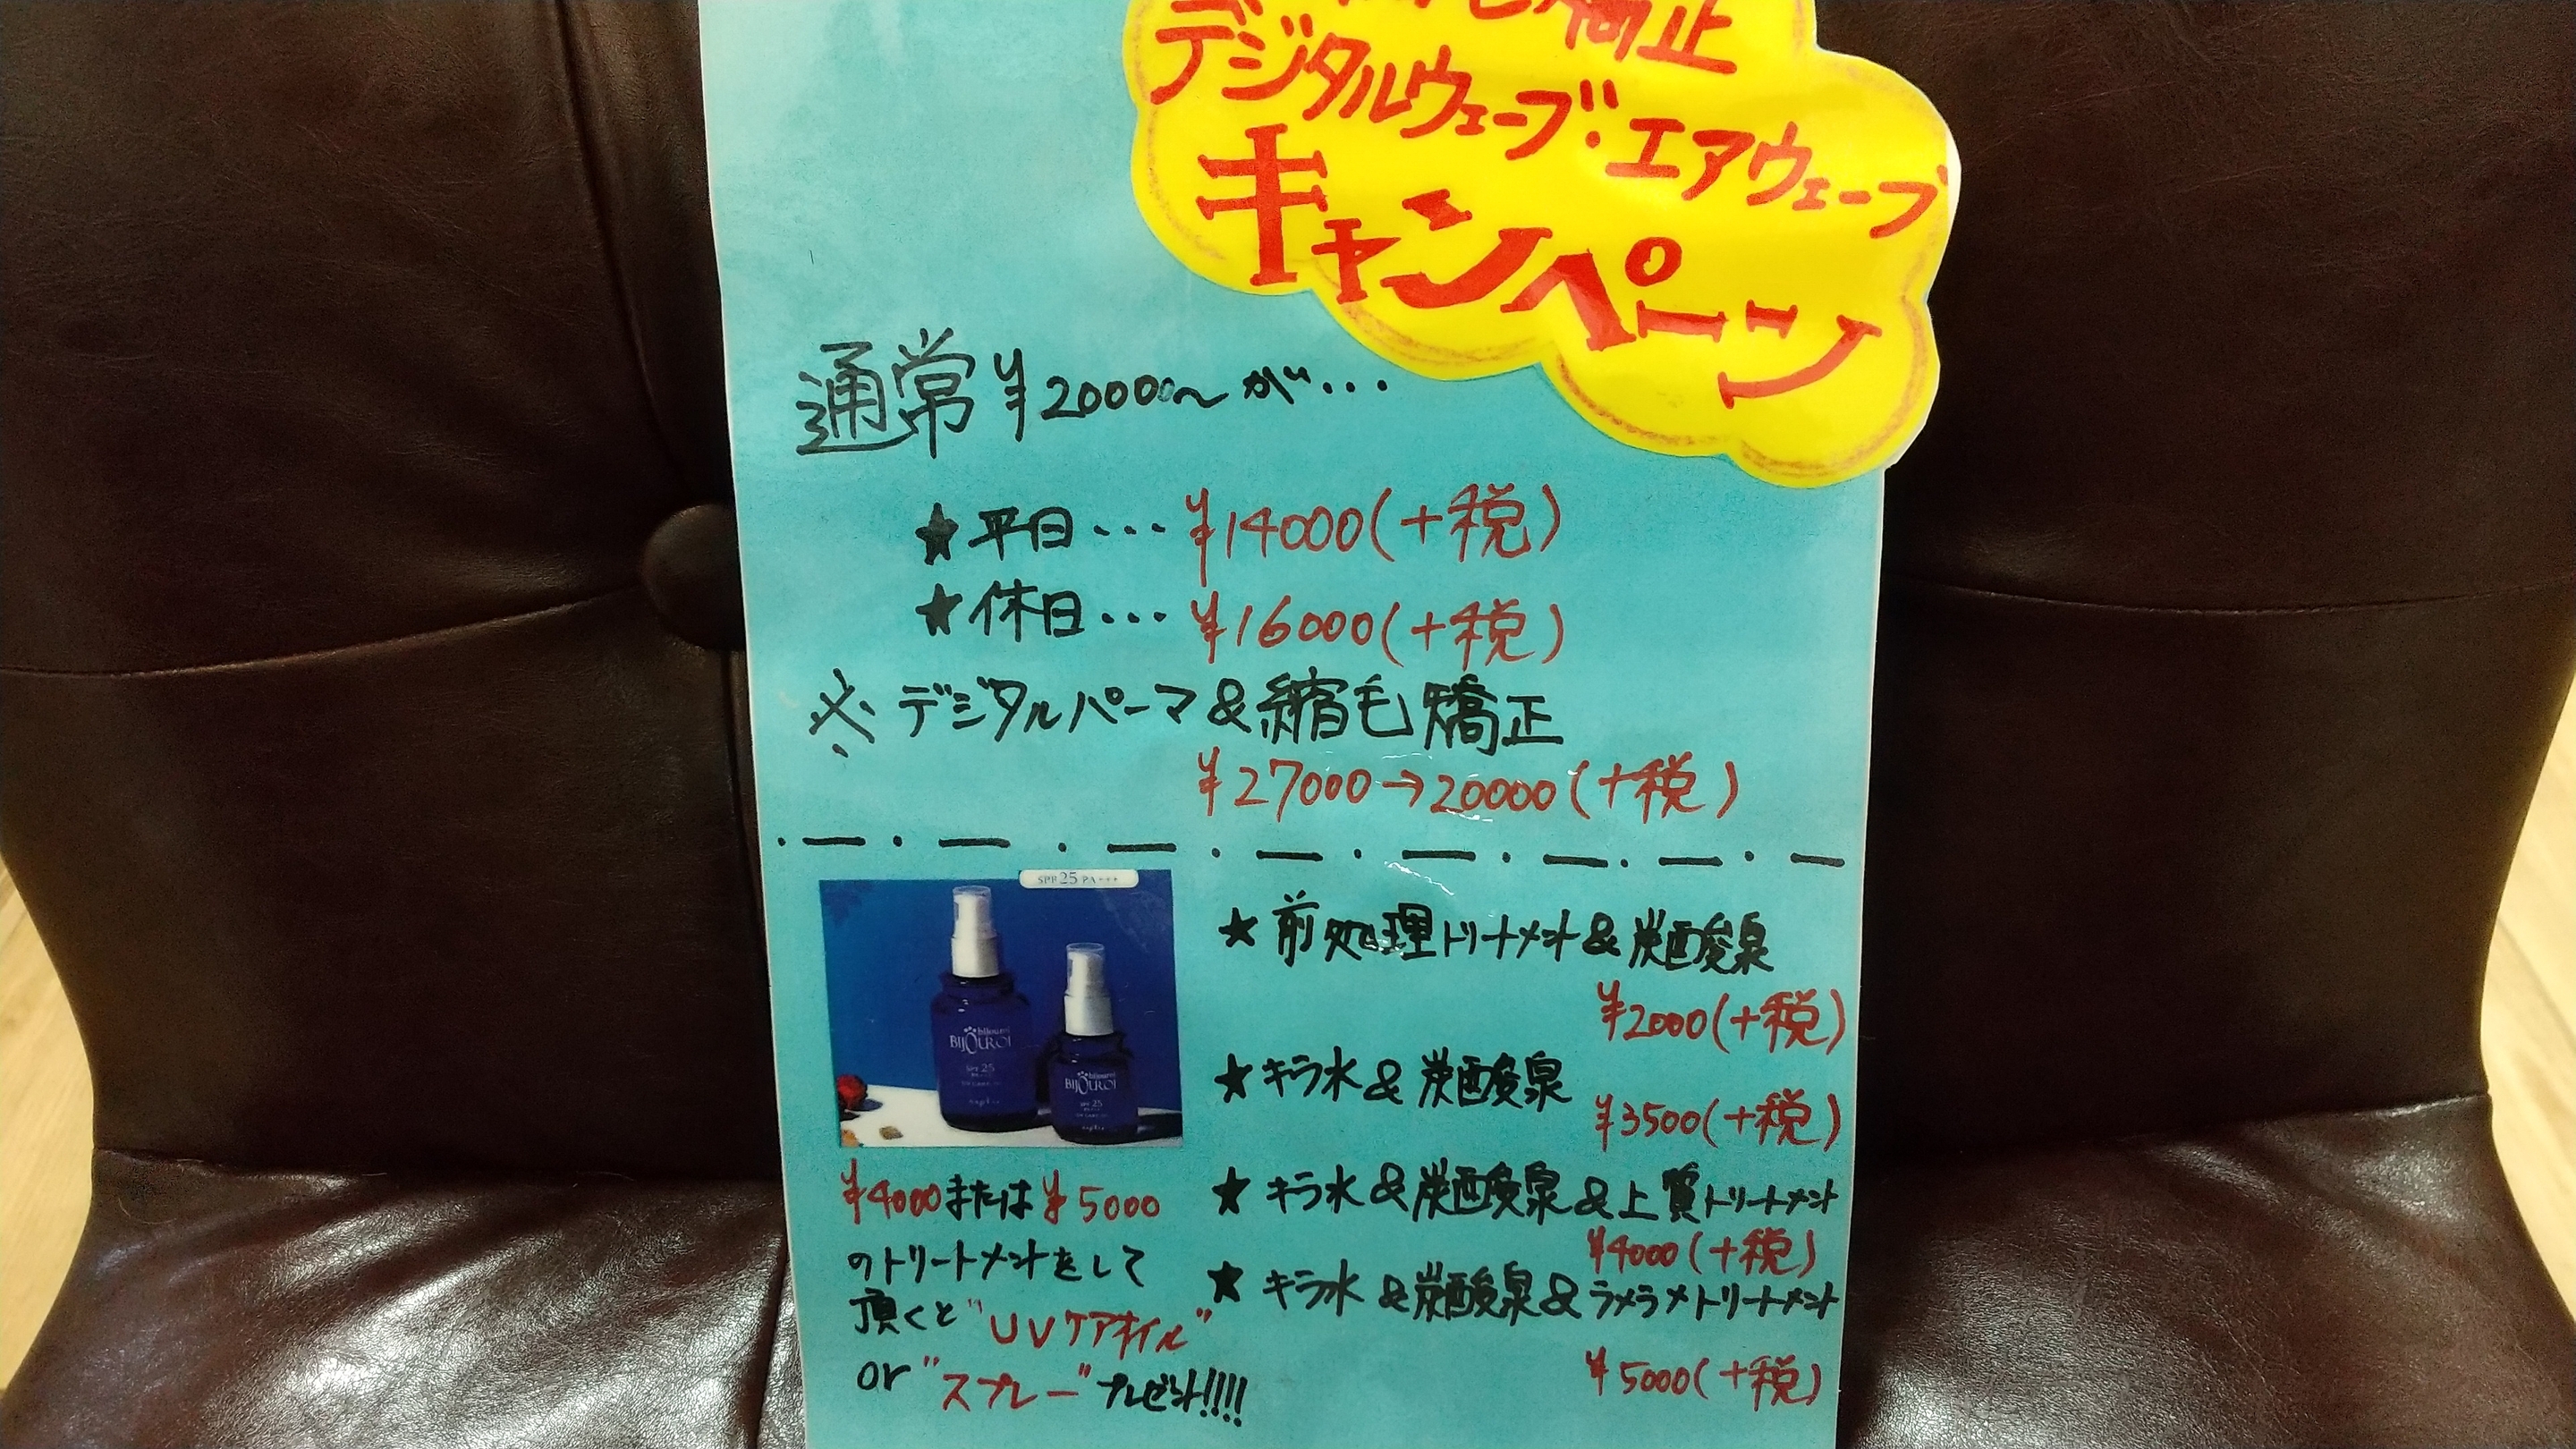 矯正
デジタルウェーブ・エアウェーブ
キャンペーン
通常¥20000〜が・・・
★平日・・・¥14000(+税)
★休日・・・¥16000(+税)
※デジタルパーマ&縮毛矯正
¥27000→20000(+税)
SPF25 PA+++
bijourri
BIJOUROI
SPF 25
napla
bijourri
BIJOUROI
SPF 25
napla
¥4000または¥5000
のトリートメントをして
頂くと"UVケアオイル"
or "スプレー"プレゼント!!!!
★前処理トリートメント&炭酸泉
¥2000(+税)
★キラ水&炭酸泉
¥3500(+税)
★キラ水&炭酸泉&上質トリートメント
¥4000(+税)
★キラ水&炭酸泉&ラメラメトリートメント
¥5000(+税)